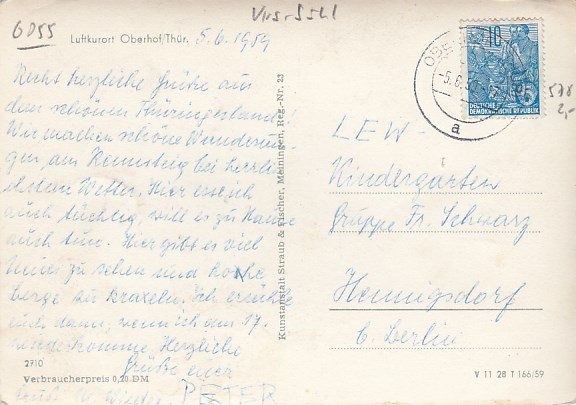 6D55
Luftkurort Oberhof/Thür. 5.6.1959
Recht herzliche Grüße aus
dem schönen Thüringerland!
Wir machen schöne Wanderun-
gen am Rennsteig bei herrli-
chstem Wetter. Hier esse ich
auch tüchtig, will es zu Hause
auch tun. Hier gibt es viel
Neues zu sehen und hohe
berge zu kraxeln. Ich erzähle
euch dann, wenn ich am 17.
wiederkomme. Herzliche
Grüße euer
PETER
2710
Verbraucherpreis 0,20 DM
Kunstanstalt Straub & Fischer, Meiningen, Reg.-Nr. 23
10
DEUTSCHE
DEMOKRATISCHE REPUBLIK
-5.6.59
a
578
2,-
LEW-
Kindergarten
Gruppe Fr. Schwarz
Hennigsdorf
b. Berlin
V 11 28 T 166/59